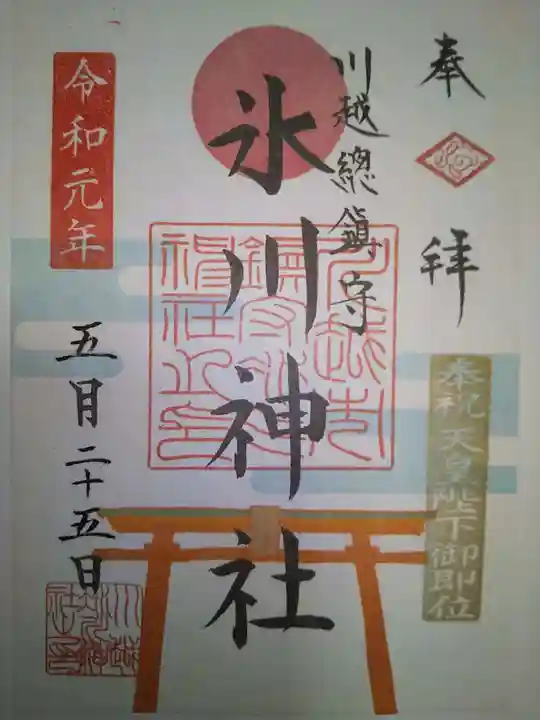 奉拝
川越總鎮守
氷川神社
令和元年
五月二十五日
奉祝天皇陛下御即位